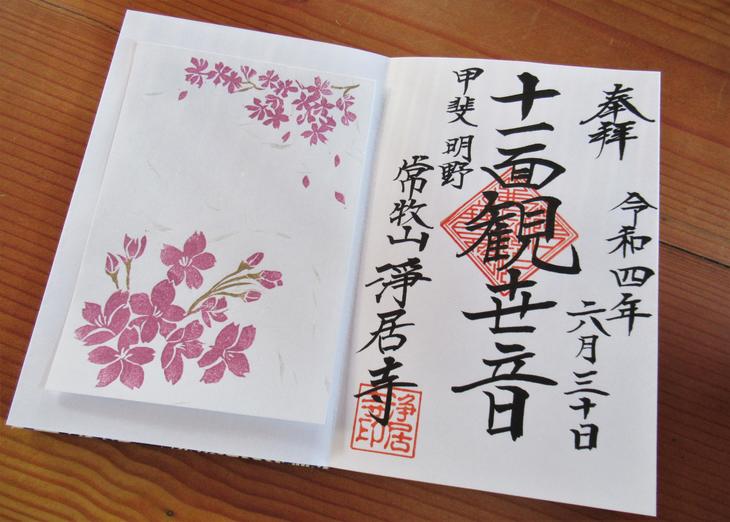 奉拝
令和四年
六月三十日
十一面観世音
甲斐 明野
常牧山 浄居寺
浄居寺印